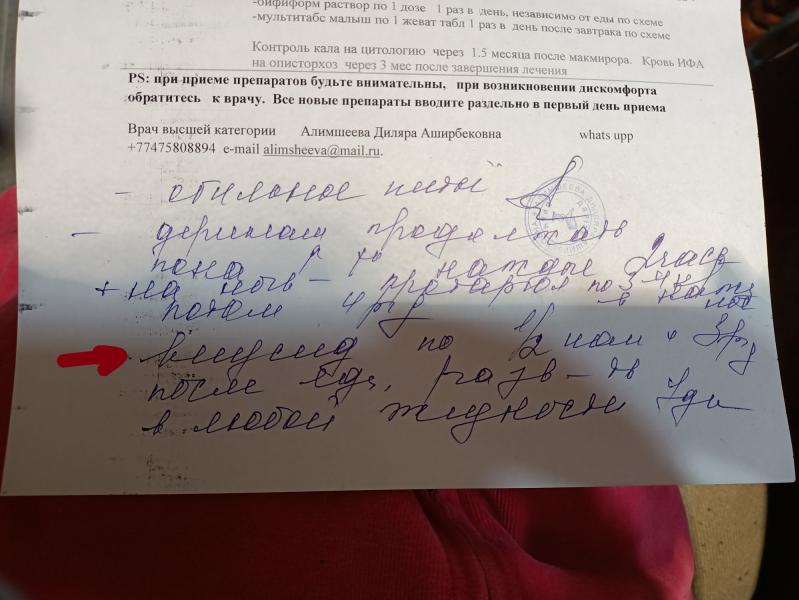 -бифиформ раствор по 1 дозе 1 раз в день, независимо от еды по схеме
-мультитабс малыш по 1 жеват табл 1 раз в день после завтрака по схеме
Контроль кала на цитологию через 1.5 месяца после макмирора. Кровь ИФА
на описторхоз через 3 мес после завершения лечения
PS: при приеме препаратов будьте внимательны, при возникновении дискомфорта
обратитесь к врачу. Все новые препараты вводите раздельно в первый день приема
Врач высшей категории Алимшеева Диляра Аширбековна whats upp
+77475808894 e-mail alimsheeva@mail.ru.
- обильное питьё
- продолжать
пока каждые 2 часа
+ на ночь - протаргол по 3-4 к
потом 4 р/д в
по 1/2 * 3 р/д
после еды, разв-ть
в любой жидкости 7 дн